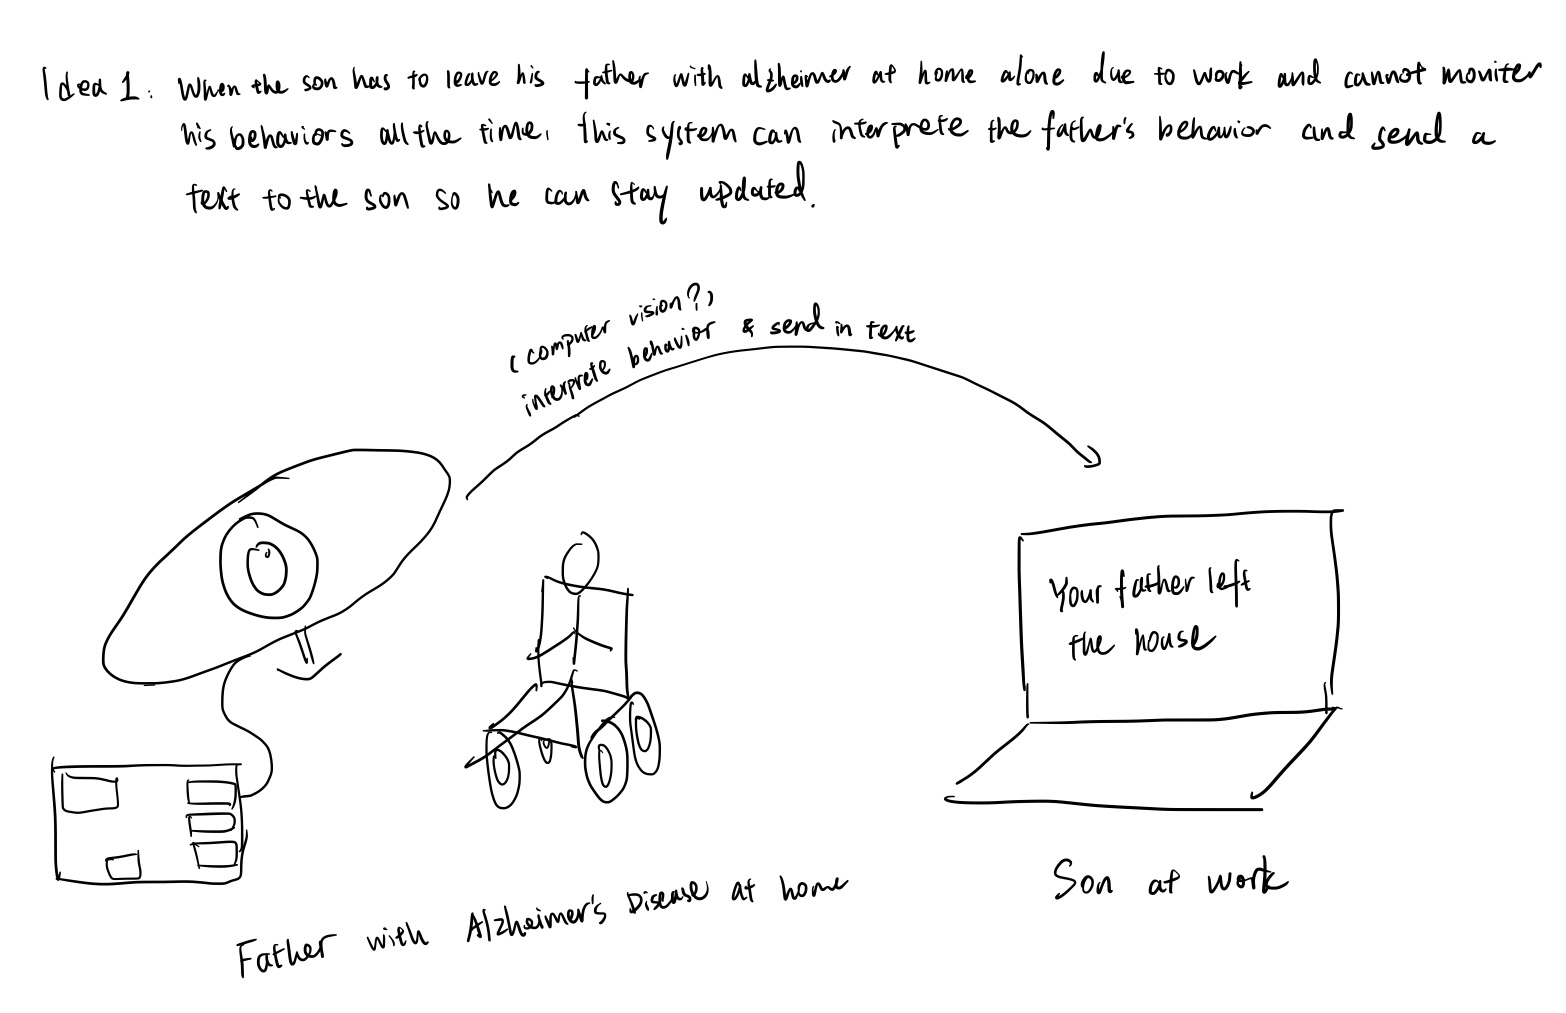 Idea 1: When the son has to leave his father with alzheimer at home alone due to work and cannot moniter
his behaviors all the time, this system can interprete the father's behavior and send a
text to the son so he can stay updated.
(computer vision?)
interprete behavior & send in text
Your father left
the house
Father with Alzheimer's Disease at home
Son at work